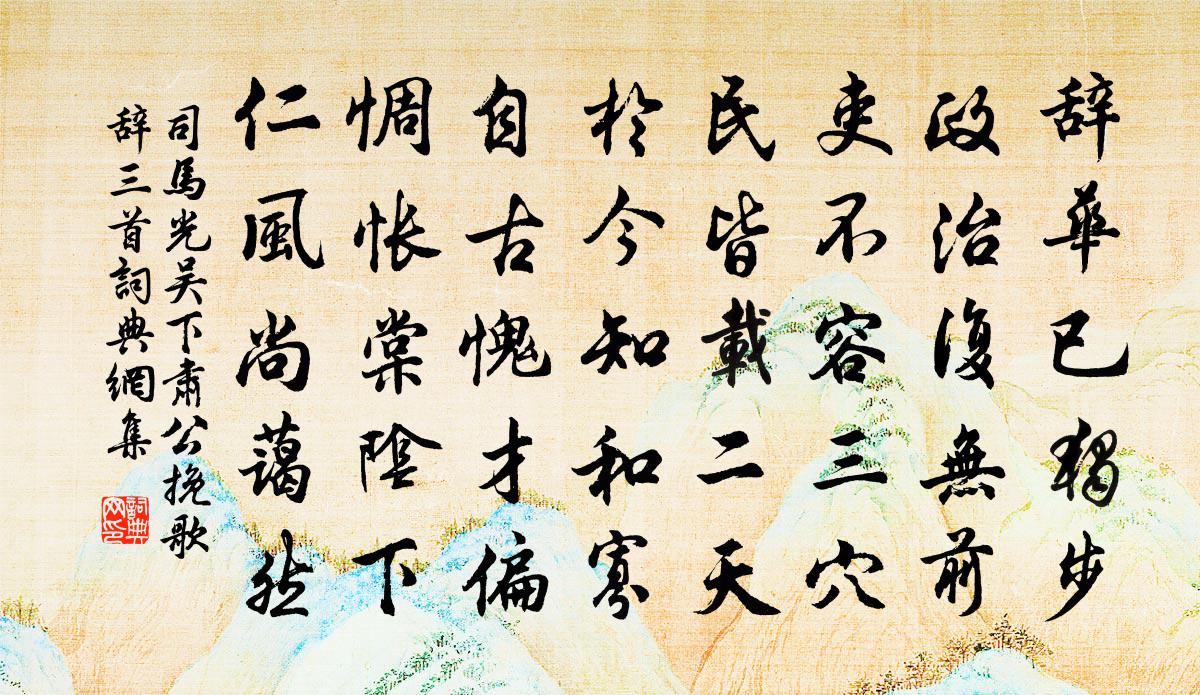 辞華已獨步
政治復無前
吏不容三穴
民皆載二天
於今知和寡
自古愧才偏
惆悵棠陰下
仁風尚藹然
司馬光吴下肅公挽歌
辞三首詞典網集
詞典
网印